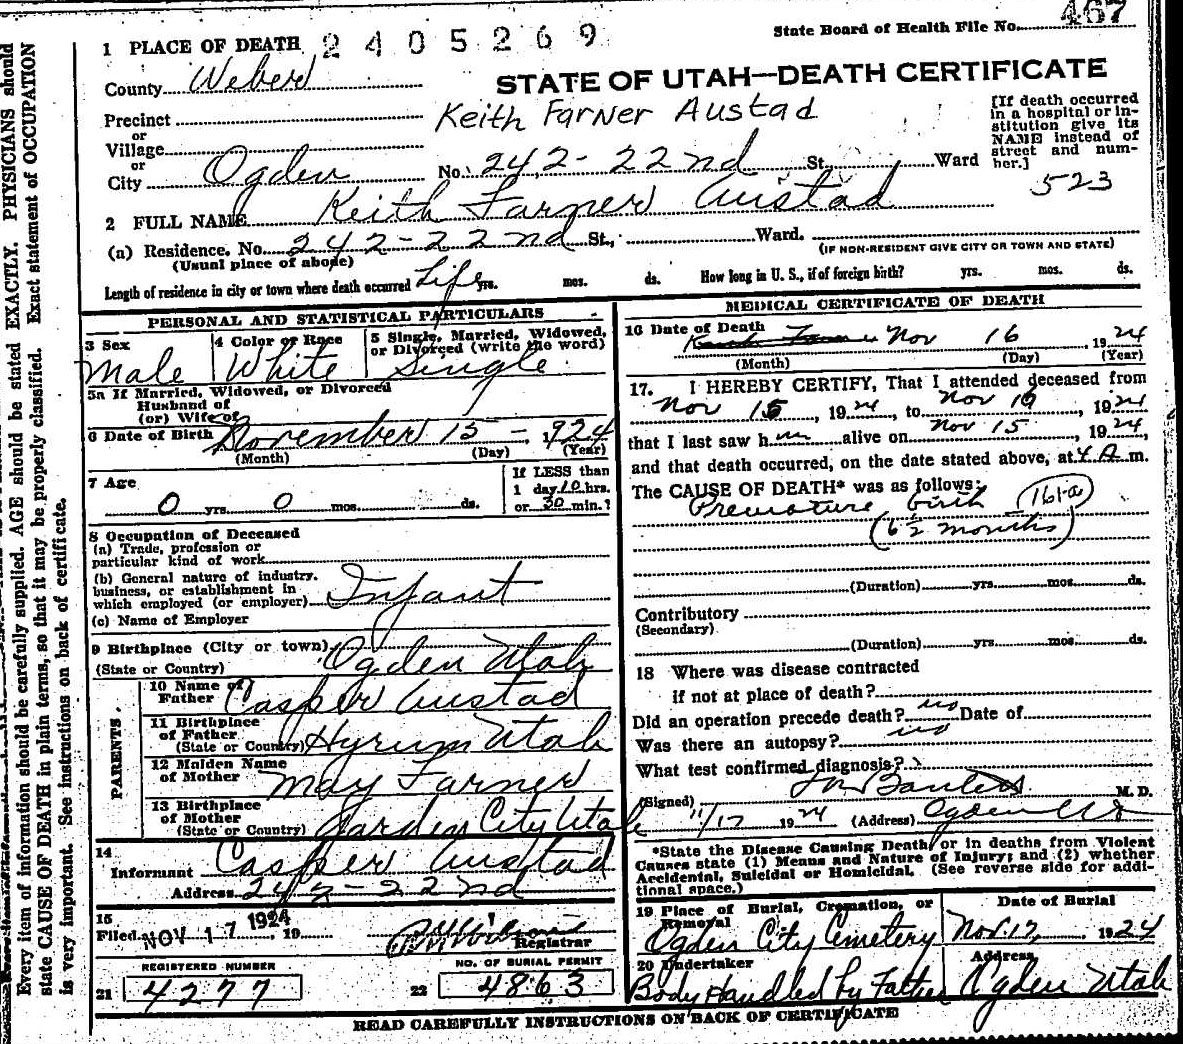 467
State Board of Health File No.
1 PLACE OF DEATH 2405269
County Weber
STATE OF UTAH—DEATH CERTIFICATE
Precinct
Keith Farner Austad
or
Village
or
City Ogden No. 242-22nd St., Ward
[If death occurred in a hospital or institution give its NAME instead of street and number.]
523
2 FULL NAME Keith Farner Austad
(a) Residence. No. 242-22nd St., Ward.
(Usual place of abode) (IF NON-RESIDENT GIVE CITY OR TOWN AND STATE)
Length of residence in city or town where death occurred Life yrs. mos. ds. How long in U. S., if of foreign birth? yrs. mos. ds.
PERSONAL AND STATISTICAL PARTICULARS
3 Sex Male
4 Color or Race White
5 Single, Married, Widowed, or Divorced (write the word) Single
5a If Married, Widowed, or Divorced
Husband of
(or) Wife of
6 Date of Birth November 15 - 1924
(Month) (Day) (Year)
7 Age 0 yrs. 0 mos. ds.
If LESS than
1 day 10 hrs.
or 30 min.?
8 Occupation of Deceased
(a) Trade, profession or
particular kind of work
(b) General nature of industry.
business, or establishment in
which employed (or employer) Infant
(c) Name of Employer
9 Birthplace (City or town) Ogden Utah
(State or Country)
PARENTS.
10 Name of
Father Casper Austad
11 Birthplace
of Father
(State or Country) Hyrum Utah
12 Maiden Name
of Mother May Farner
13 Birthplace
of Mother
(State or Country) Garden City Utah
14
Informant Casper Austad
Address 242-22nd
15
Filed NOV 17 1924 19
Registrar
REGISTERED NUMBER
21 4277
NO. OF BURIAL PERMIT
22 4863
MEDICAL CERTIFICATE OF DEATH
16 Date of Death Nov 16 1924
(Month) (Day) (Year)
17. I HEREBY CERTIFY, That I attended deceased from
Nov 15, 1924, to Nov 16, 1924
that I last saw him alive on Nov 15, 1924,
and that death occurred, on the date stated above, at 4 A m.
The CAUSE OF DEATH* was as follows:
Premature birth 161-a
(6½ months)
(Duration) yrs. mos. ds.
Contributory
(Secondary)
(Duration) yrs. mos. ds.
18 Where was disease contracted
if not at place of death?
Did an operation precede death? no Date of
Was there an autopsy? no
What test confirmed diagnosis?
(Signed) M. D.
11/17 1924 (Address) Ogden
*State the Disease Causing Death, or in deaths from Violent
Causes state (1) Means and Nature of Injury; and (2) whether
Accidental, Suicidal or Homicidal. (See reverse side for additional space.)
19 Place of Burial, Cremation, or
Removal
Ogden City Cemetery
Date of Burial
Nov. 17, 1924
20 Undertaker
Body Handled by Father
Address
Ogden Utah
READ CAREFULLY INSTRUCTIONS ON BACK OF CERTIFICATE
Every item of information should be carefully supplied. AGE should be stated EXACTLY. PHYSICIANS should
state CAUSE OF DEATH in plain terms, so that it may be properly classified. Exact statement of OCCUPATION
is very important. See instructions on back of certificate.